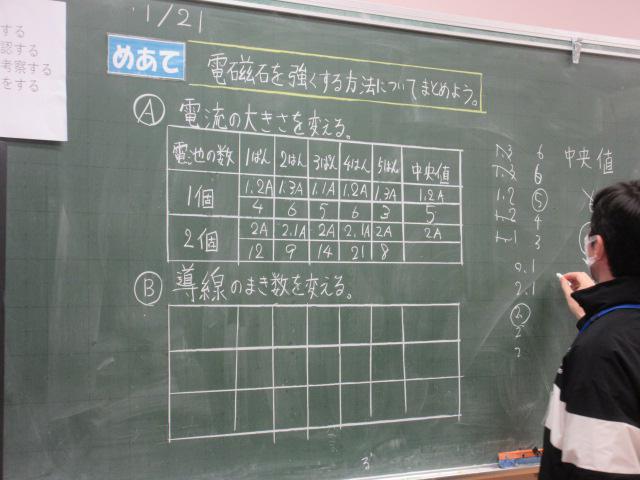 する
認する
考察する
をする
1/21
めあて
電磁石を強くする方法についてまとめよう。
Ⓐ 電流の大きさを変える。
電池の数 1ぱん 2はん 3ぱん 4はん 5はん 中央値
1個 1.2A 1.3A 1.1A 1.2A 1.3A 1.2A
4 6 5 6 3 5
2個 2A 2.1A 2A 2.1A 2A 2A
12 9 14 21 8
Ⓑ 導線のまき数を変える。
中央値
1.3 6
1.3 6
1.2 ⑤
1.2 4
1.1 3
2.1
2.1
②
2
2